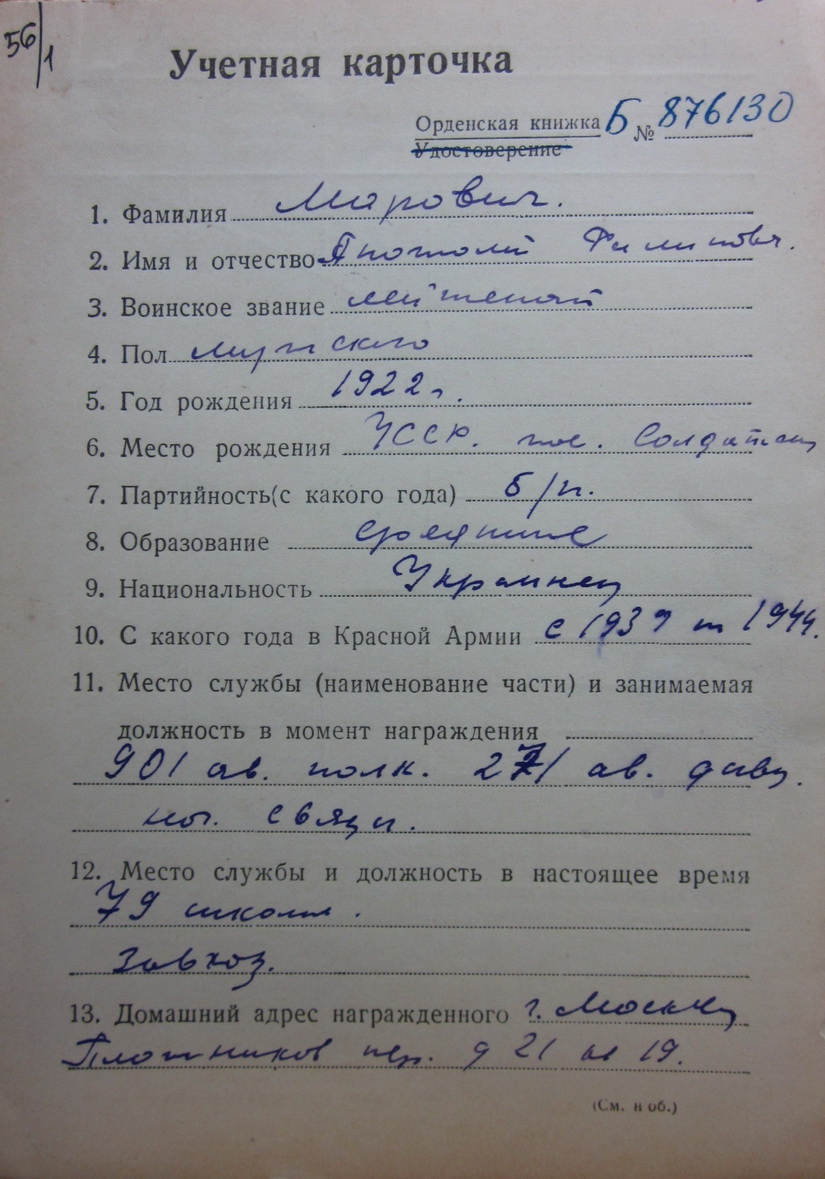 56/1
Учетная карточка
Орденская книжка Б № 876130
Удостоверение
1. Фамилия Марович.
2. Имя и отчество Анатолий Филипович.
3. Воинское звание лейтенант
4. Пол мужской
5. Год рождения 1922 г.
6. Место рождения УССР. пос.
7. Партийность (с какого года) б/п.
8. Образование среднее
9. Национальность Украинец
10. С какого года в Красной Армии с 1939 1944.
11. Место службы (наименование части) и занимаемая
должность в момент награждения
901 ав. полк. 271 ав. див.
нач. связи.
12. Место службы и должность в настоящее время
79 школа.
Завхоз.
13. Домашний адрес награжденного г. Москва
Плотников пер. д 21 кв 19.
(См. н об.)